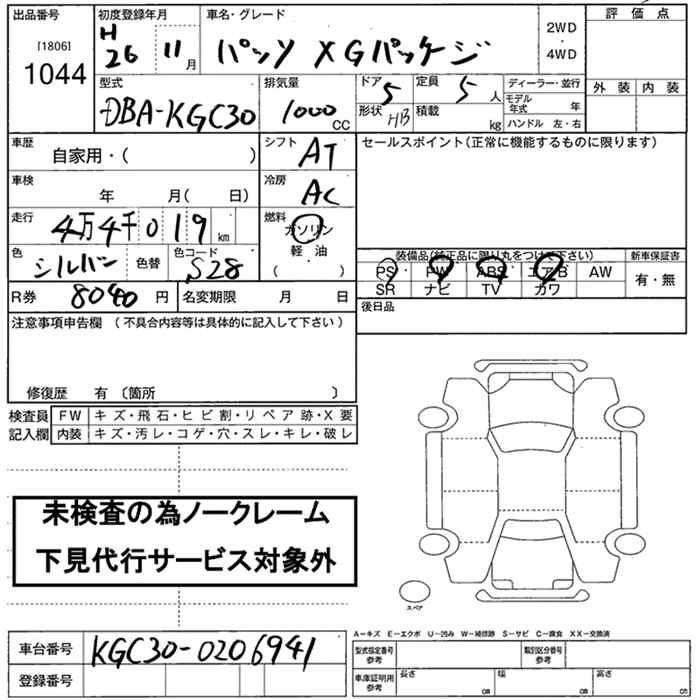 出品番号 初度登録年月 車名・グレード 評価点
[1806]
1044
H
26 11月 パッソ XGパッケージ 2WD
・
4WD
外装 内装
型式 排気量 ドア 定員 ディーラー・並行
DBA-KGC30 1000 CC 5 5 人 モデル年式 年
形状 HB 積載 kg ハンドル 左・右
車歴 自家用・( ) シフト AT セールスポイント(正常に機能するものに限ります)
車検 年 月( 日) 冷房 AC
走行 4万4千019 km 燃料 ガソリン
軽・油
( )
色 シルバー 色替 色コード S28
装備品(純正品に限り丸をつけて下さい) 新車保証書
PS PW ABS エアB AW 有・無
SR ナビ TV カワ
R券 8040 円 名変期限 月 日 後日品
注意事項申告欄 (不具合内容等は具体的に記入して下さい)
修復歴 有 〔箇所 〕
検査員 FW キズ・飛石・ヒビ割・リペア跡・X要
記入欄 内装 キズ・汚レ・コゲ・穴・スレ・キレ・破レ
未検査の為ノークレーム
下見代行サービス対象外
スペア
A-キズ E-エクボ U-凹み W-補修跡 S-サビ C-腐食 XX-交換済
車台番号 KGC30-0206941 型式指定番号 参考 類別区分番号 参考
登録番号 車庫証明用 参考 長さ cm 幅 cm 高さ cm